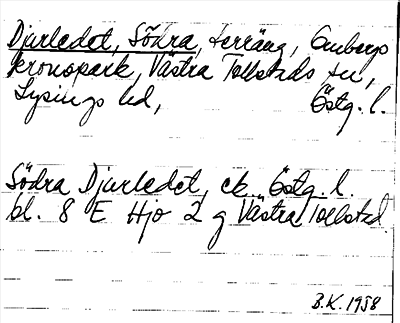 Djurledet, Södra, terräng, Ombergs
kronopark, Västra Tollstads sn,
Lysings hd, Östg. l.
Södra Djurledet, ek. Östg. l.
bl. 8 E Hjo 2 g Västra Tollstad.
B.K. 1958